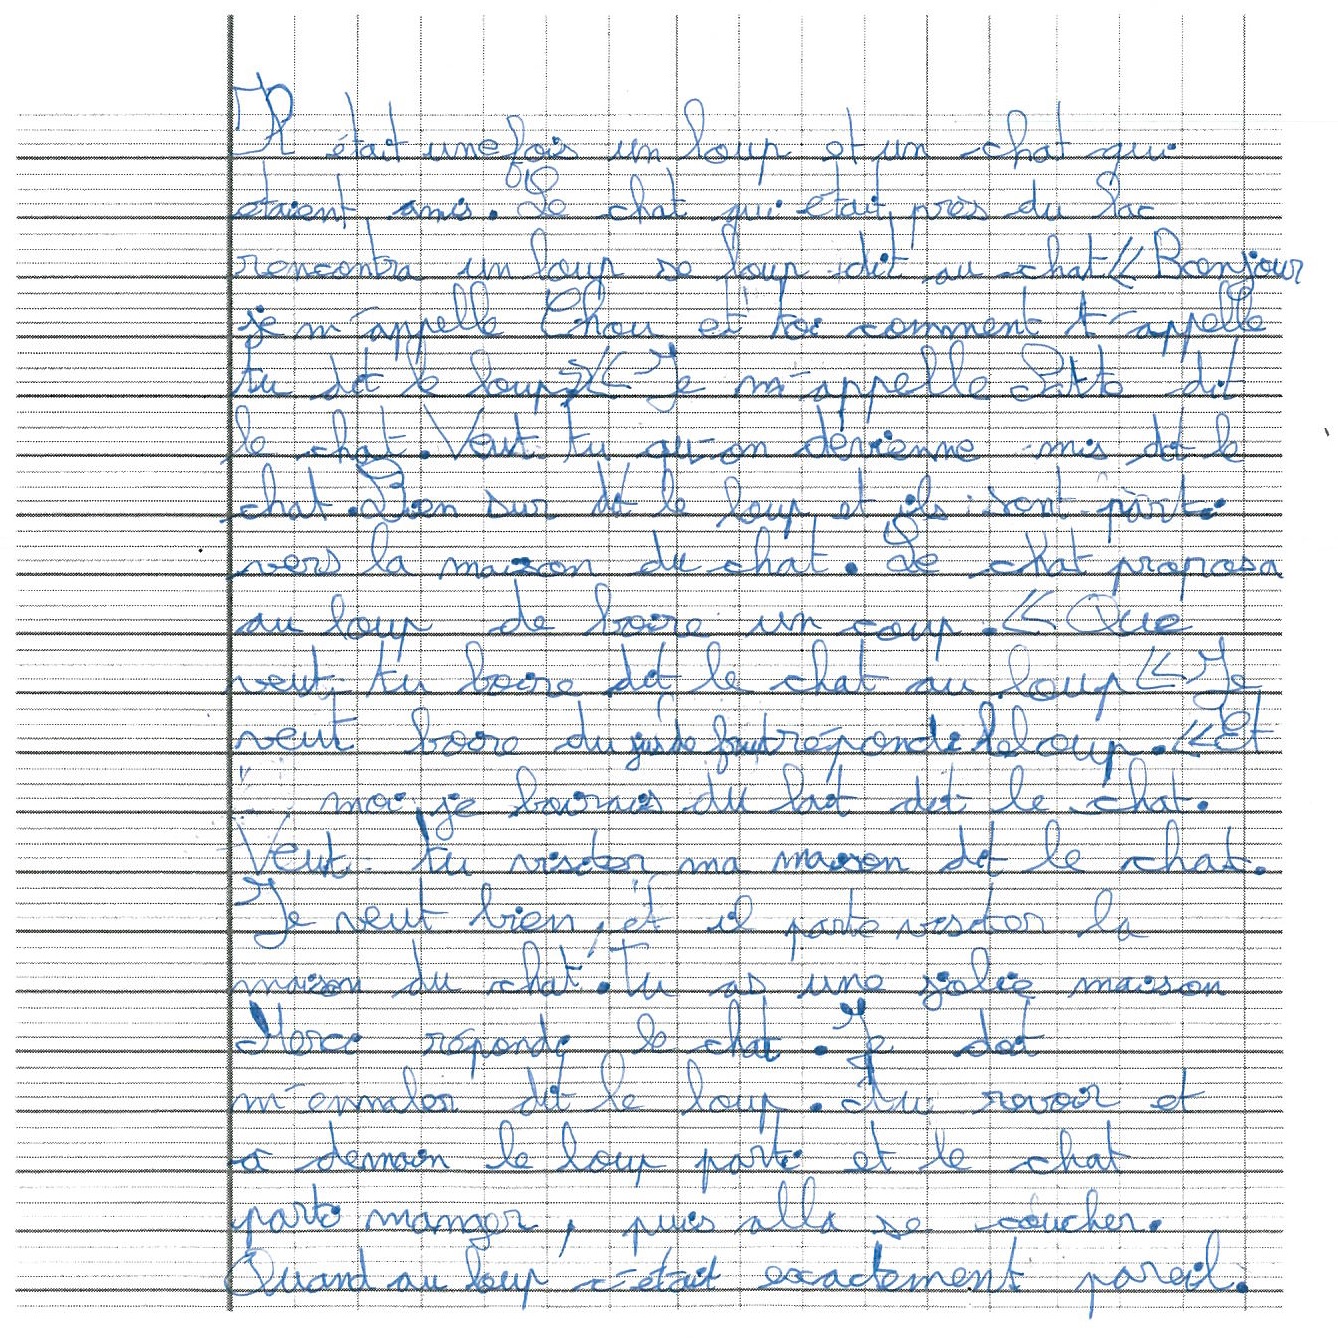 Il était une fois un loup et un chat qui
etaient amis. Le chat qui était près du lac
rencontra un loup se loup dit au chat « Bonjour
je m'appelle Chou et toi comment t'appelle
tu dit le loup » « Je m'appelle dit
le chat. Veut-tu qu'on devienne mis dit le
chat. Bien sur dit le loup et ils sont parti
vers la maison du chat. Le chat proposa
au loup de boire un coup. « Que
veut-tu boire dit le chat au loup « Je
veut boire du jus de fruit réponds le loup. « Et
moi je boirais du lait dit le chat.
Veut-tu visiter ma maison dit le chat.
Je veut bien, et il parte visiter la
maison du chat. Tu as une jolie maison
Merci réponds le chat. Je doit
m'ennaler dit le loup. Au revoir et
a demain le loup parti et le chat
parti manger, puis alla se coucher.
Quand au loup c'était exactement pareil.